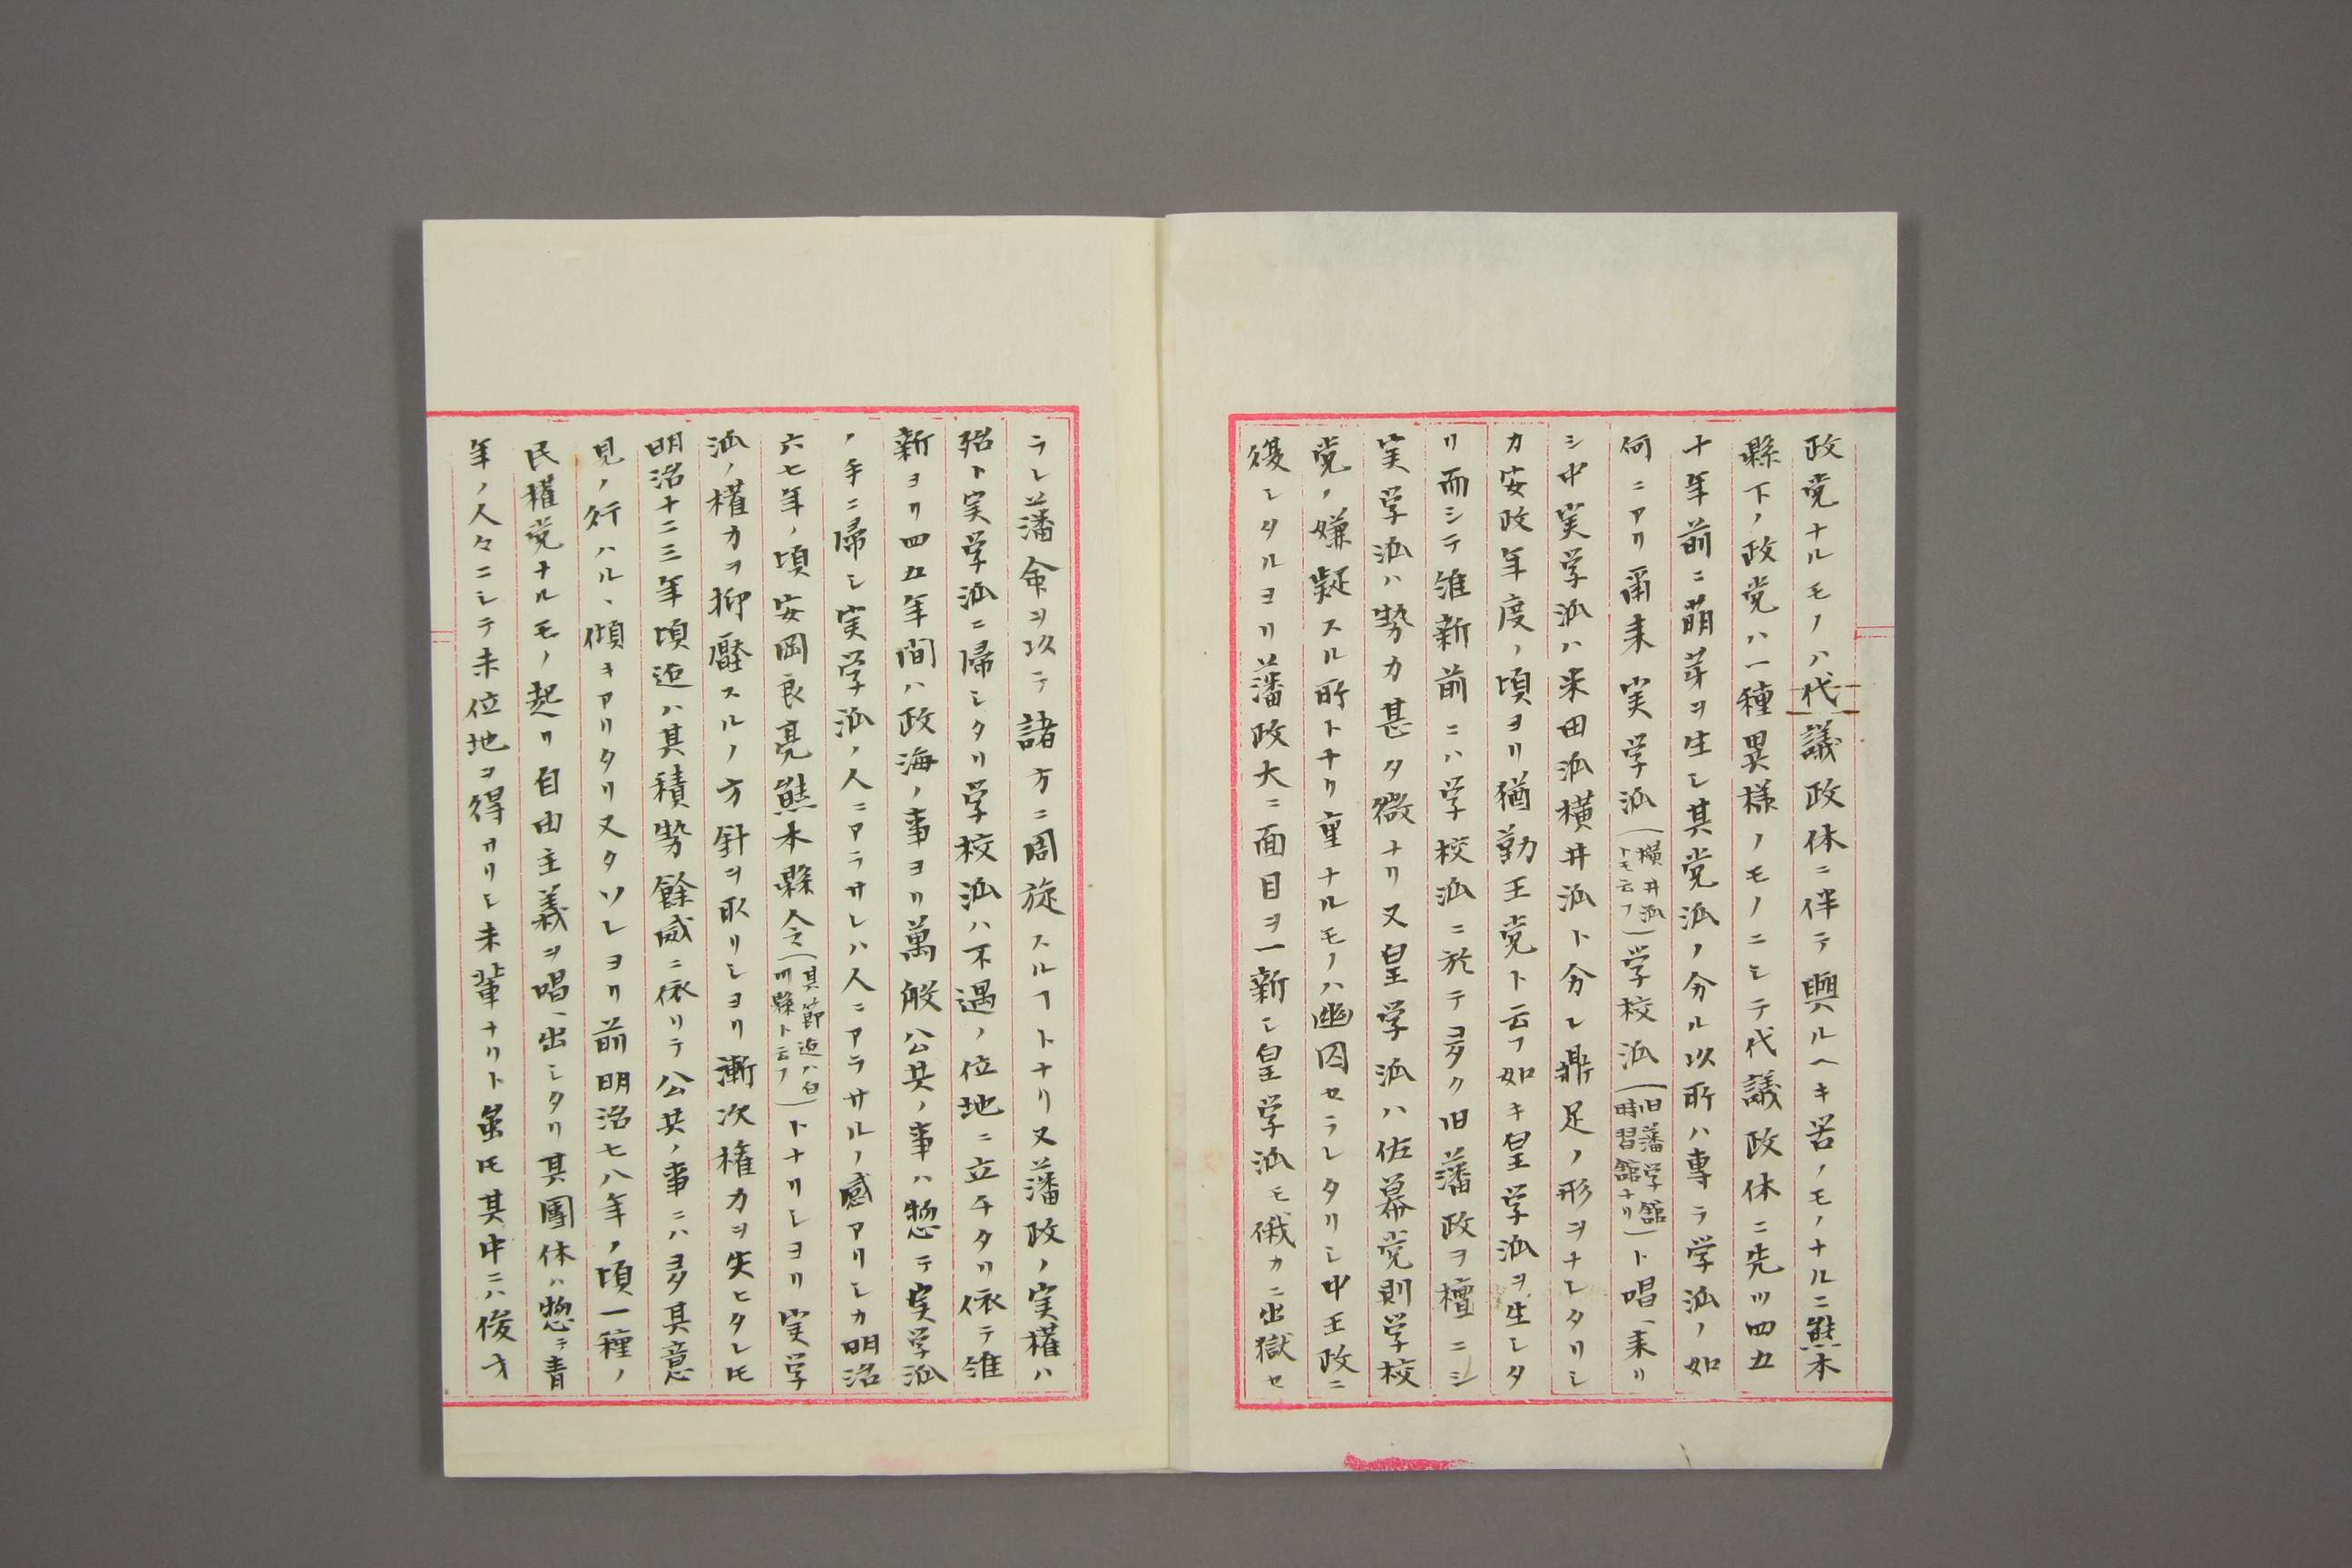 政党ナルモノハ代議政体ニ伴テ興ルヘキ筈ノモノナルニ熊本
縣下ノ政党ハ一種異様ノモノニシテ代議政体ニ先ツ四五
十年前ニ萌芽ヲ生シ其党派ノ分ル以所ハ専ラ学派ノ如
何ニアリ爾来実学派(横井派トモ云フ)学校派(旧藩学館時習館ナリ)ト唱ヘ来リ
シ中実学派ハ米田派横井派ト分レ鼎足ノ形ヲナシタリシ
カ安政年度ノ頃ヨリ猶勤王党ト云フ如キ皇学派ヲ生シタ
リ而シテ維新前ニハ学校派ニ於テ多ク旧藩政ヲ檀ニシ
実学派ハ勢力甚タ微ナリ又皇学派ハ佐幕党則学校
党ノ嫌疑スル所トナリ重ナルモノハ幽囚セラレタリシ中王政ニ
復シタルヨリ藩政大ニ面目ヲ一新シ皇学派モ俄カニ出獄セ
ラレ藩命ヲ以テ諸方ニ周旋スルヿトナリ又藩政ノ実権ハ
殆ト実学派ニ帰シタリ学校派ハ不遇ノ位地ニ立チタリ依テ維
新ヨリ四五年間ハ政海ノ事ヨリ萬般公共ノ事ハ惣テ実学派
ノ手ニ帰シ実学派ノ人ニアラサレハ人ニアラサルノ感アリシカ明治
六七年ノ頃安岡良亮熊本縣令(其節迠ハ白川縣ト云フ)トナリシヨリ実学
派ノ権力ヲ抑壓スルノ方針ヲ取リシヨリ漸次権力ヲ失ヒタレ𪜈
明治十二三年頃迠ハ其積勢餘威ニ依リテ公共ノ事ニハ多ク其意
見ノ行ハルヽ傾キアリタリ又タソレヨリ前明治七八年ノ頃一種ノ
民権党ナルモノ起リ自由主義ヲ唱ヘ出シタリ其團体ハ惣テ青
年ノ人々ニシテ未位地ヲ得サリシ未輩ナリト虽𪜈其中ニハ俊才